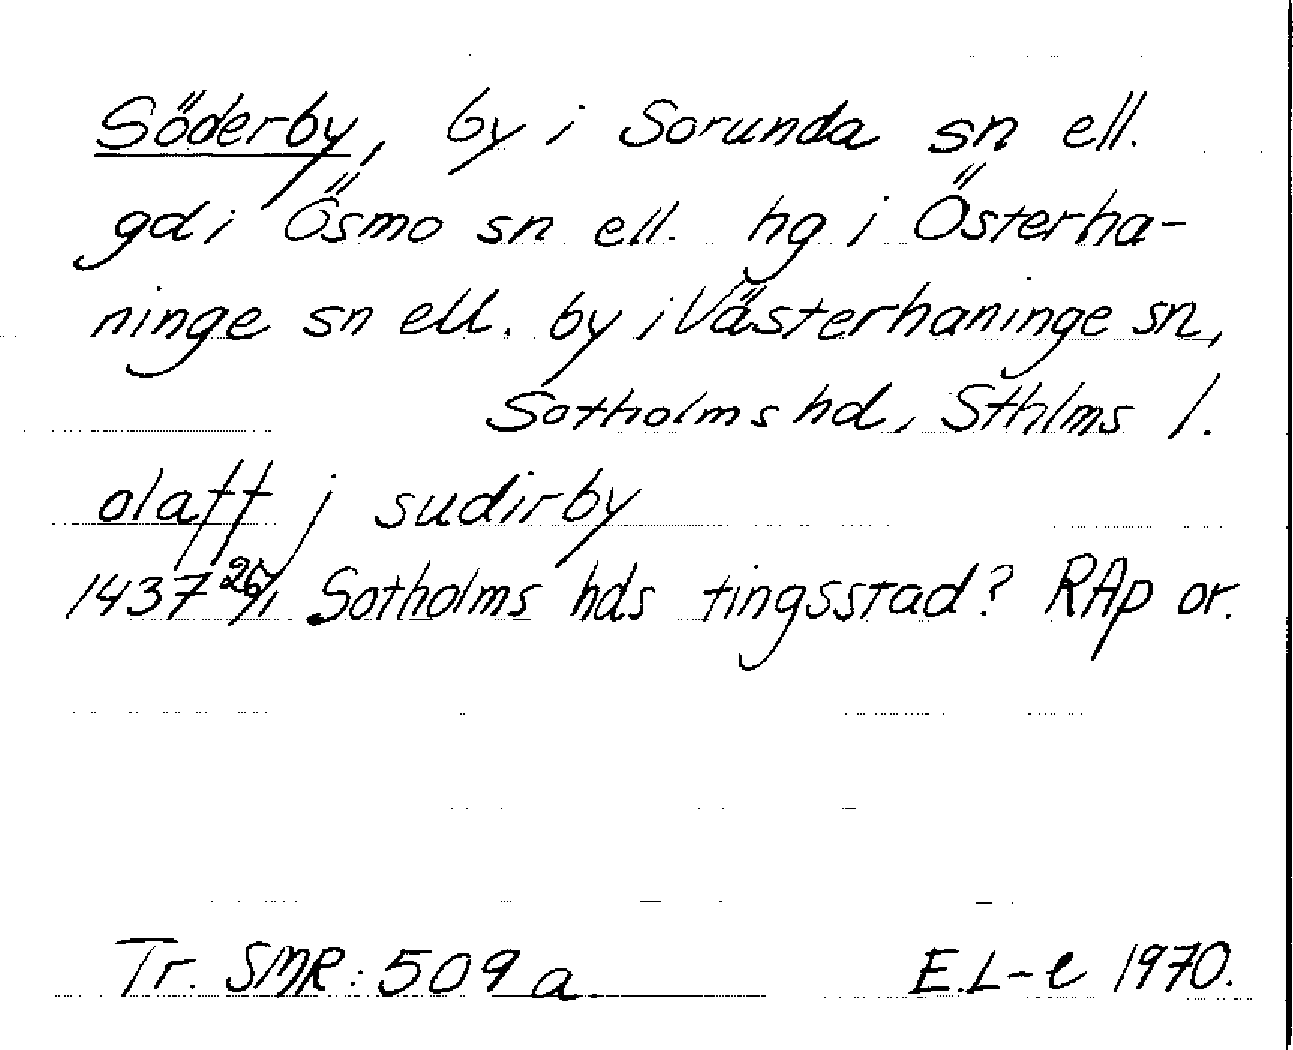 Söderby, by i Sorunda sn ell.
gd i Ösmo sn ell. hg i Österha-
ninge sn ell. by i Västerhaninge sn,
Sotholms hd, Sthlms l.
olaff j sudirby
1437 26/1 Sotholms hds tingsstad? RAp or.
Tr. SMR: 509 a. E.L-e 1970.